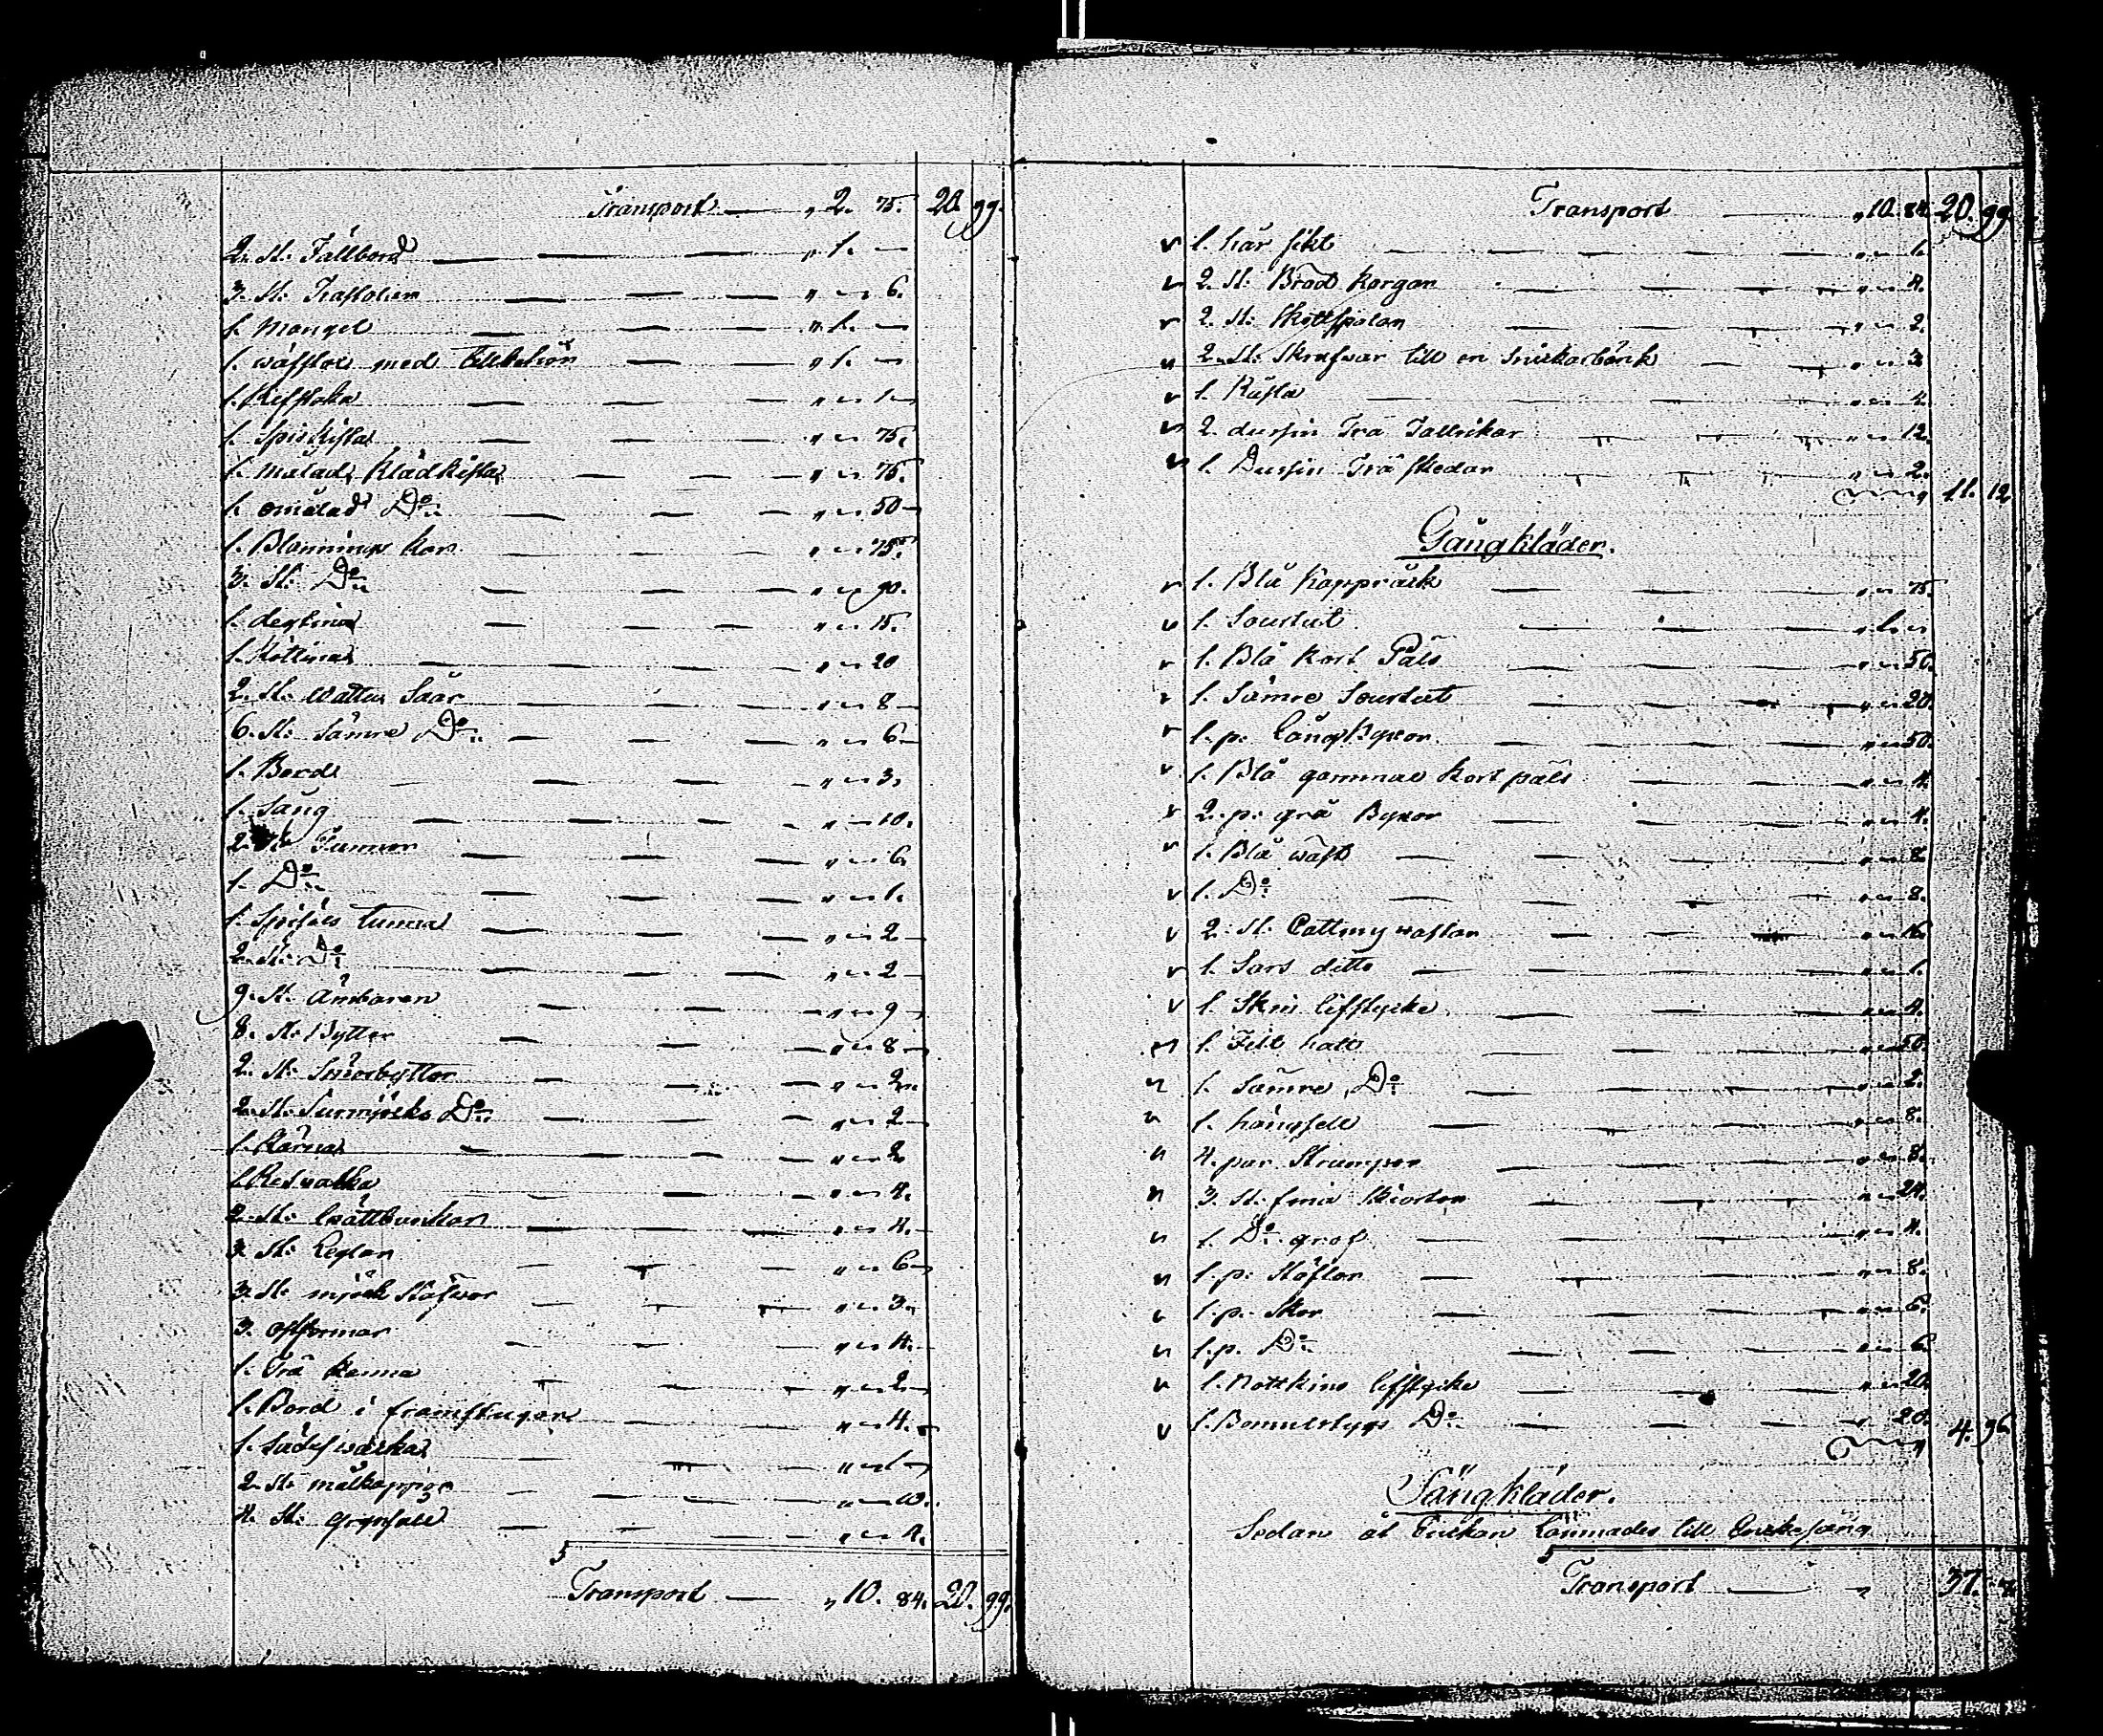 Transport — „ 2. 75. 20. 99.
2. St: Fällbord — „ 1. —
3. St: Trästolar — „ „ 6.
1. Mangel — „ 1. —
1. wäfstol med tillbehör — „ 1. —
1. — „ „ 1
1. Spis Kista — „ „ 75.
1. målad Klädkista — „ „ 75.
1. omålad Do: — „ „ 50
1. Kar — „ „ 75.
3. St: Do: — „ „ 90.
1. degtina — „ „ 15.
1. Köttina — „ „ 20
2. St: watten Såar — „ „ 8
6. St: Sämre Do: — „ „ 6
1. Bord — „ „ 3
1. Säng — „ „ 10.
2. St: Tunnor — „ „ 6
1. Do: — „ „ 1.
1. Spisöls tunna — „ „ 2
2. St: Do: — „ „ 2
9. St: Ämbaren — „ „ 9
8. St: Byttor — „ „ 8
2. St: Smörbyttor — „ „ 2
2. St: Surmjölks Do: — „ „ 2
1. Kärna — „ „ 2
1. — „ „ 4.
2. St: twättbunkar — „ „ 4.
3. St: Leglar — „ „ 6
3. St: mjölk Stäfwor — „ „ 3
3. ostformar — „ „ 4.
1. Trä kanna — „ „ 2
1. Bord i framstugan — „ „ 4.
1. — „ „ 1
2. St: målkappor — „ „ 10.
4. St: grynsåll — „ „ 4.
Transport — „ 10. 84. 20. 99.
Transport — „ 10. 84. 20. 99.
1. hår sikt — „ „ 1.
2. St: Bröd korgar — „ „ 4.
2. St: Skottspolar — „ „ 2.
2. St: Skrufvar till en Snickarbänk — „ „ 3
1. Kista — „ „ 4
2. dussin Trä Tallrikar — „ „ 12.
1. Dussin Trä skedar — „ „ 2. 11. 12
Gångkläder.
1. Blå Kappråck — „ „ 75.
1. Sourtut — „ 1. „
1. Blå kort Päls — „ „ 50.
1. Sämre Sourtut — „ „ 20.
1. p: Långbyxor — „ „ 50.
1. Blå gammal kort päls — „ „ 4
2. p: grå Byxor — „ „ 4.
1. Blå wäst — „ „ 8
1. Do: — „ „ 8.
2. St: Cattuns wästar — „ „ 16.
1. Sars ditto — „ „ 1.
1. Skin lifstycke — „ „ 4.
1. Filt hatt — „ „ 50.
1. Sämre Do: — „ „ 2.
1. hängsele — „ „ 8.
4. par Strumpor — „ „ 8.
3. St: fina Skiortor — „ „ 24.
1. Do: grof — „ „ 4.
1. p: Stöflar — „ „ 8.
1. p: Skor — „ „ 6
1. p. Do: — „ „ 6
1. Nattkins lifstycke — „ „ 20.
1. Bomulstygs Do: — „ 20. 4. 96
Sängkläder.
Sedan åt Enckan lämnades till Enckesäng
Transport — „ 37. 7